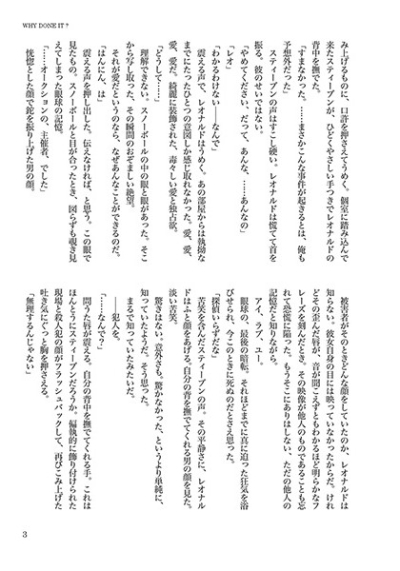 WHY DONE IT ?
み上げるものに、口許を押さえてうめく。個室に踏み込んで
来たスティーブンが、ひどくやさしい手つきでレオナルドの
背中を撫でた。
「すまなかった。……まさかこんな事件が起きるとは、俺も
予想外だった」
スティーブンの声はすこし硬い。レオナルドは慌てて首を
振る。彼のせいではない。
「やめてください、だって、あんな、……あんなの」
「レオ」
「わかるわけない――なんで」
震える声で、レオナルドはうめく。あの部屋からは執拗な
までにたったひとつの意図しか感じ取れなかった。愛、愛、
愛、愛だ。綺麗に装飾された、毒々しい愛と独占欲。
「どうして……」
理解できない。スノーボールの中の眼と眼があった。そこ
から写し取った、その瞬間のおぞましい絶望。
それが愛だというのなら、なぜあんなことができるのだ。
「はんにん、は」
震える声を押し出した。伝えなければ、と思う。この眼で
見たもの。スノーボールと目が合ったとき、図らずも覗き見
えてしまった眼球の記憶。
「……オークションの、主催者、でした」
恍惚とした顔で鉈を振り上げた男の顔。
被害者がそのときどんな顔をしていたのか、レオナルドは
知らない。彼女自身の目には映っていなかったからだ。けれ
どその歪んだ唇が、音が聞こえずともわかるほど明らかなフ
レーズを刻んだとき、その映像が他人のものであることも忘
れて恐慌に陥った。もうそこにありはしない、ただの他人の
記憶だと知りながら。
アイ、ラブ、ユー。
眼球の、最後の暗転。それほどまでに真に迫った狂気を浴
びせられ、今このときに死ぬのだとさえ思った。
「探偵いらずだな」
苦笑を含んだスティーブンの声。その平静さに、レオナル
ドはふと顔をあげる。自分の背を撫でてくれる男の顔を見た。
淡い苦笑。
驚きはない。意外さも。驚かなかった、というより単純に、
知っていたようだ。そう思った。
まるで知っていたみたいだ。
――犯人を。
「……なんで?」
問うた唇が震える。自分の背中を撫でてくれる手。これは
ほんとうにスティーブンだろうか。偏執的に飾り付けられた
現場と殺人犯の顔がフラッシュバックして、再びこみ上げた
吐き気にぐっと胸を押さえる。
「無理するんじゃない」
3